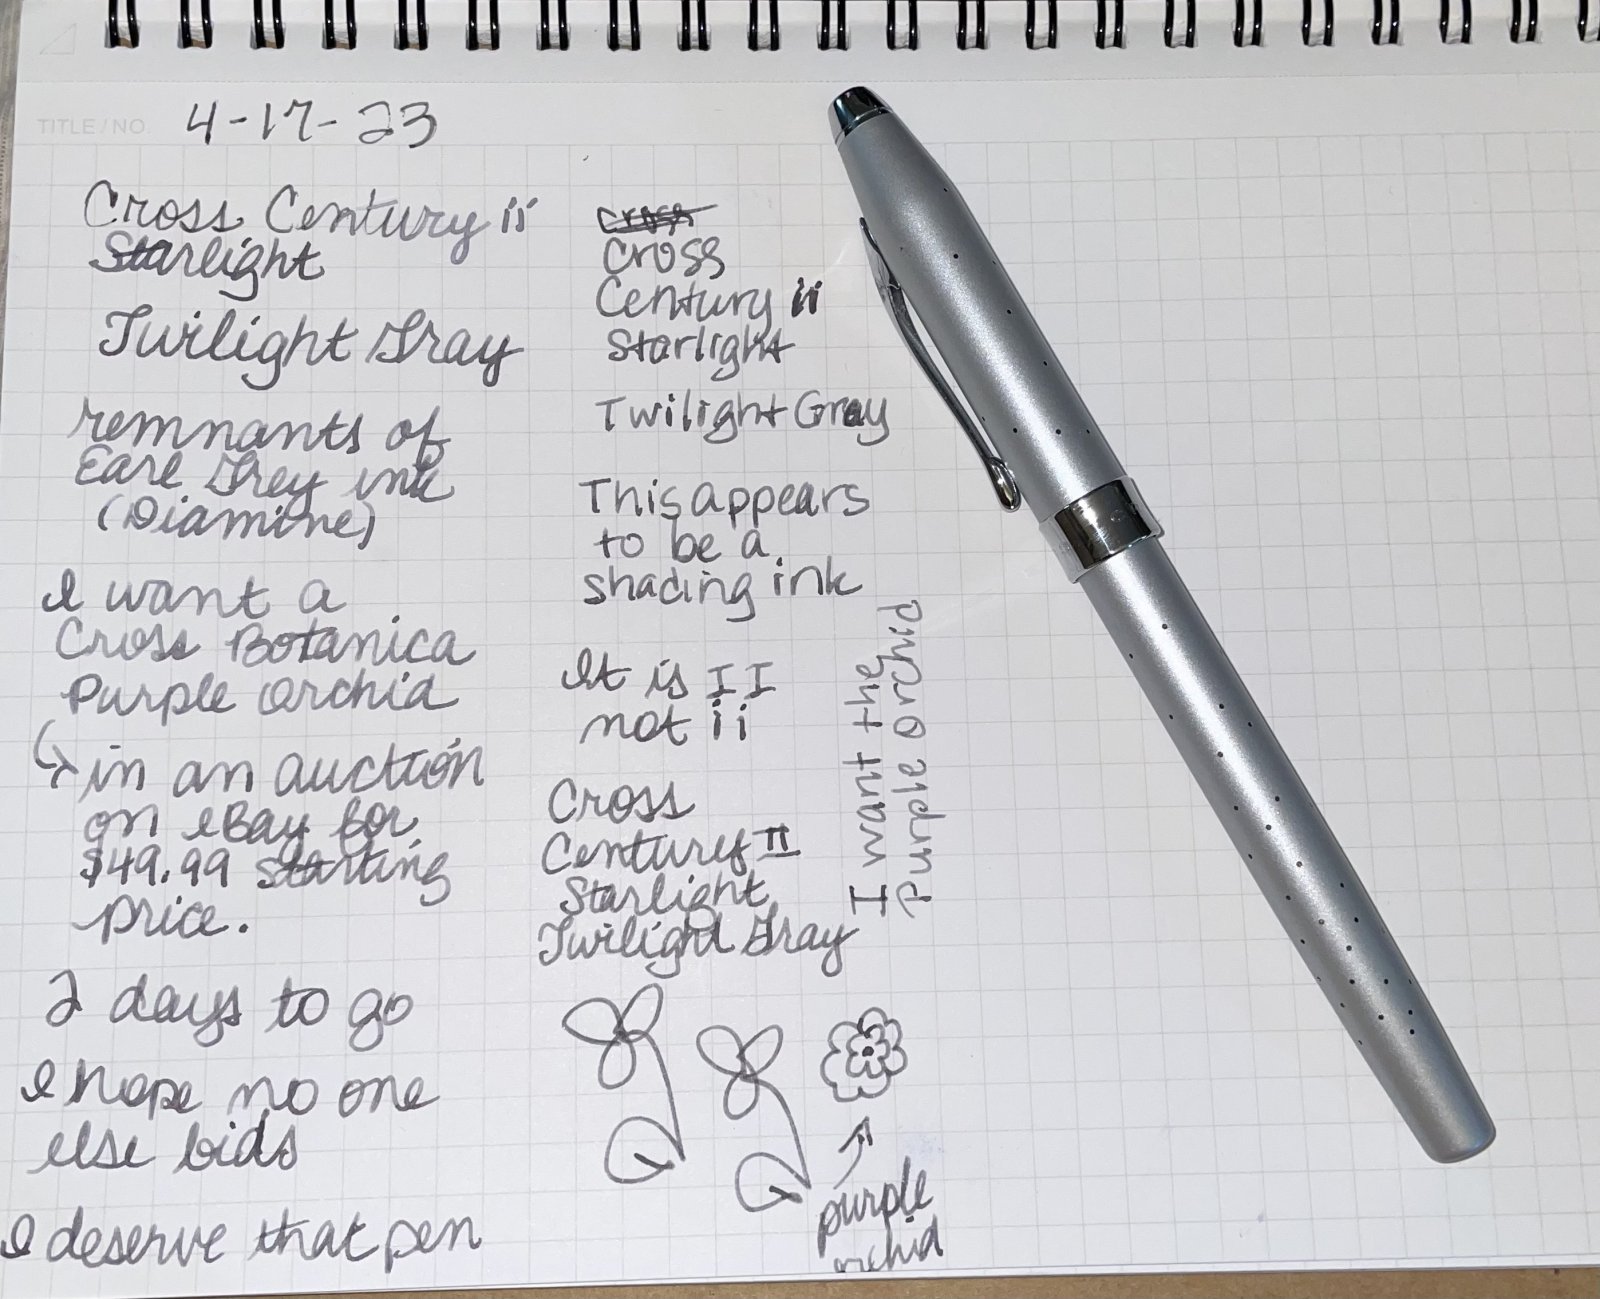 TITLE/NO. 4-17-23
Cross Century ii
Starlight
Twilight Gray
remnants of
Earl Grey ink
(Diamine)
I want a
Cross Botanica
Purple Orchid
in an auction
on eBay for
$49.99 starting
price.
2 days to go
I hope no one
else bids
I deserve that pen
cross
Cross
Century ii
Starlight
Twilight Gray
This appears
to be a
shading ink
It is II
not ii
Cross
Century II
Starlight
Twilight Gray
I want the
Purple Orchid
purple
orchid